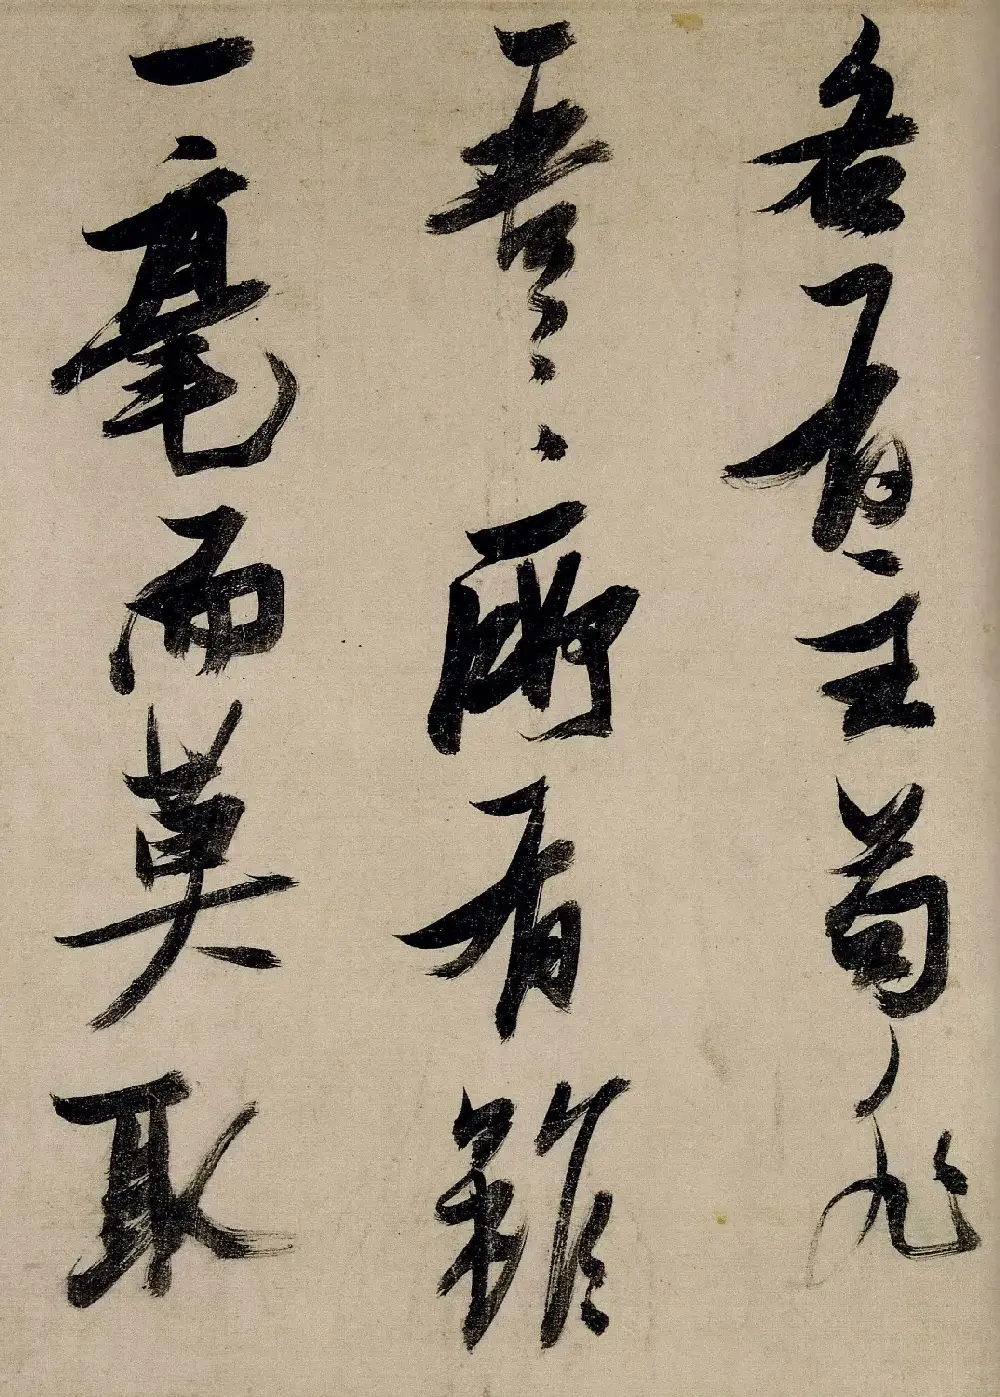 各有主苟非
吾之所有雖
一毫而莫取